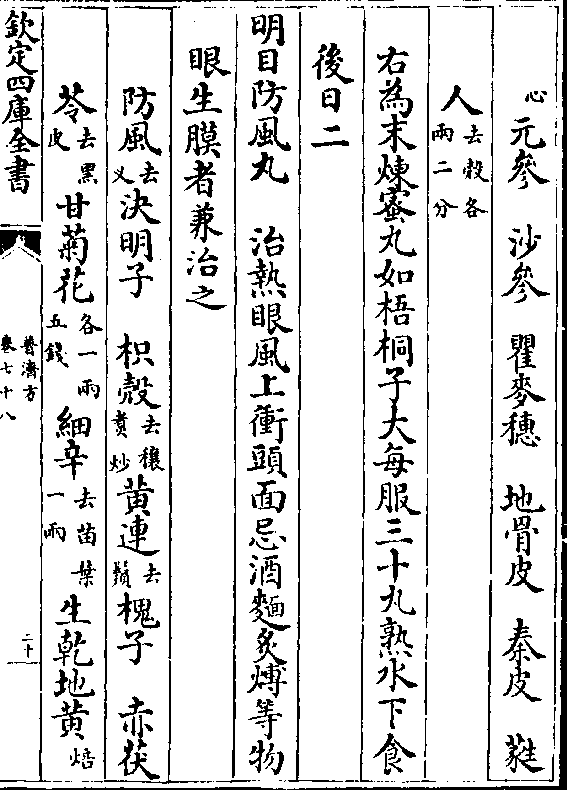 心元參　沙參　瞿麥穗　地骨皮　秦皮　蕤
人去殻各兩二分
右為末煉蜜丸如梧桐子大每服三十丸熟水下食
後日二
明目防風丸　治熱眼風上衝頭面忌酒麵炙煿等物
眼生膜者兼治之
防風去义決明子　枳殻去穰麩炒黄連去鬚槐子　赤茯
苓去黑皮甘菊花各一兩五錢細辛去苗葉一兩生乾地黄焙
欽定四庫全書
普濟方
卷七十八
二十